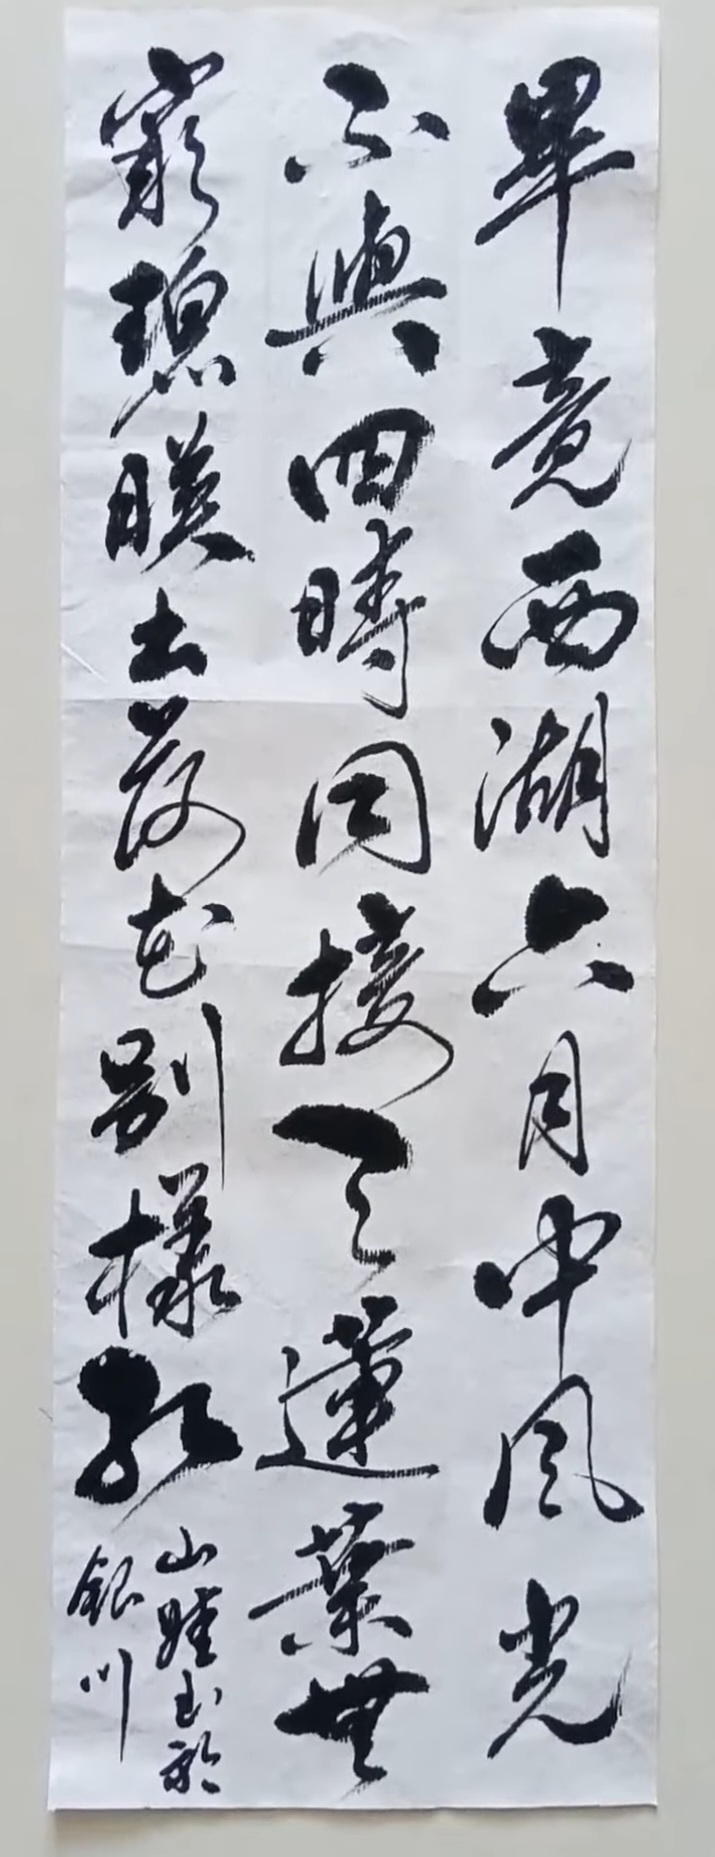 畢竟西湖六月中風光
不與四時同接天蓮葉無
窮碧暎日荷花別樣紅
山書於
銀川